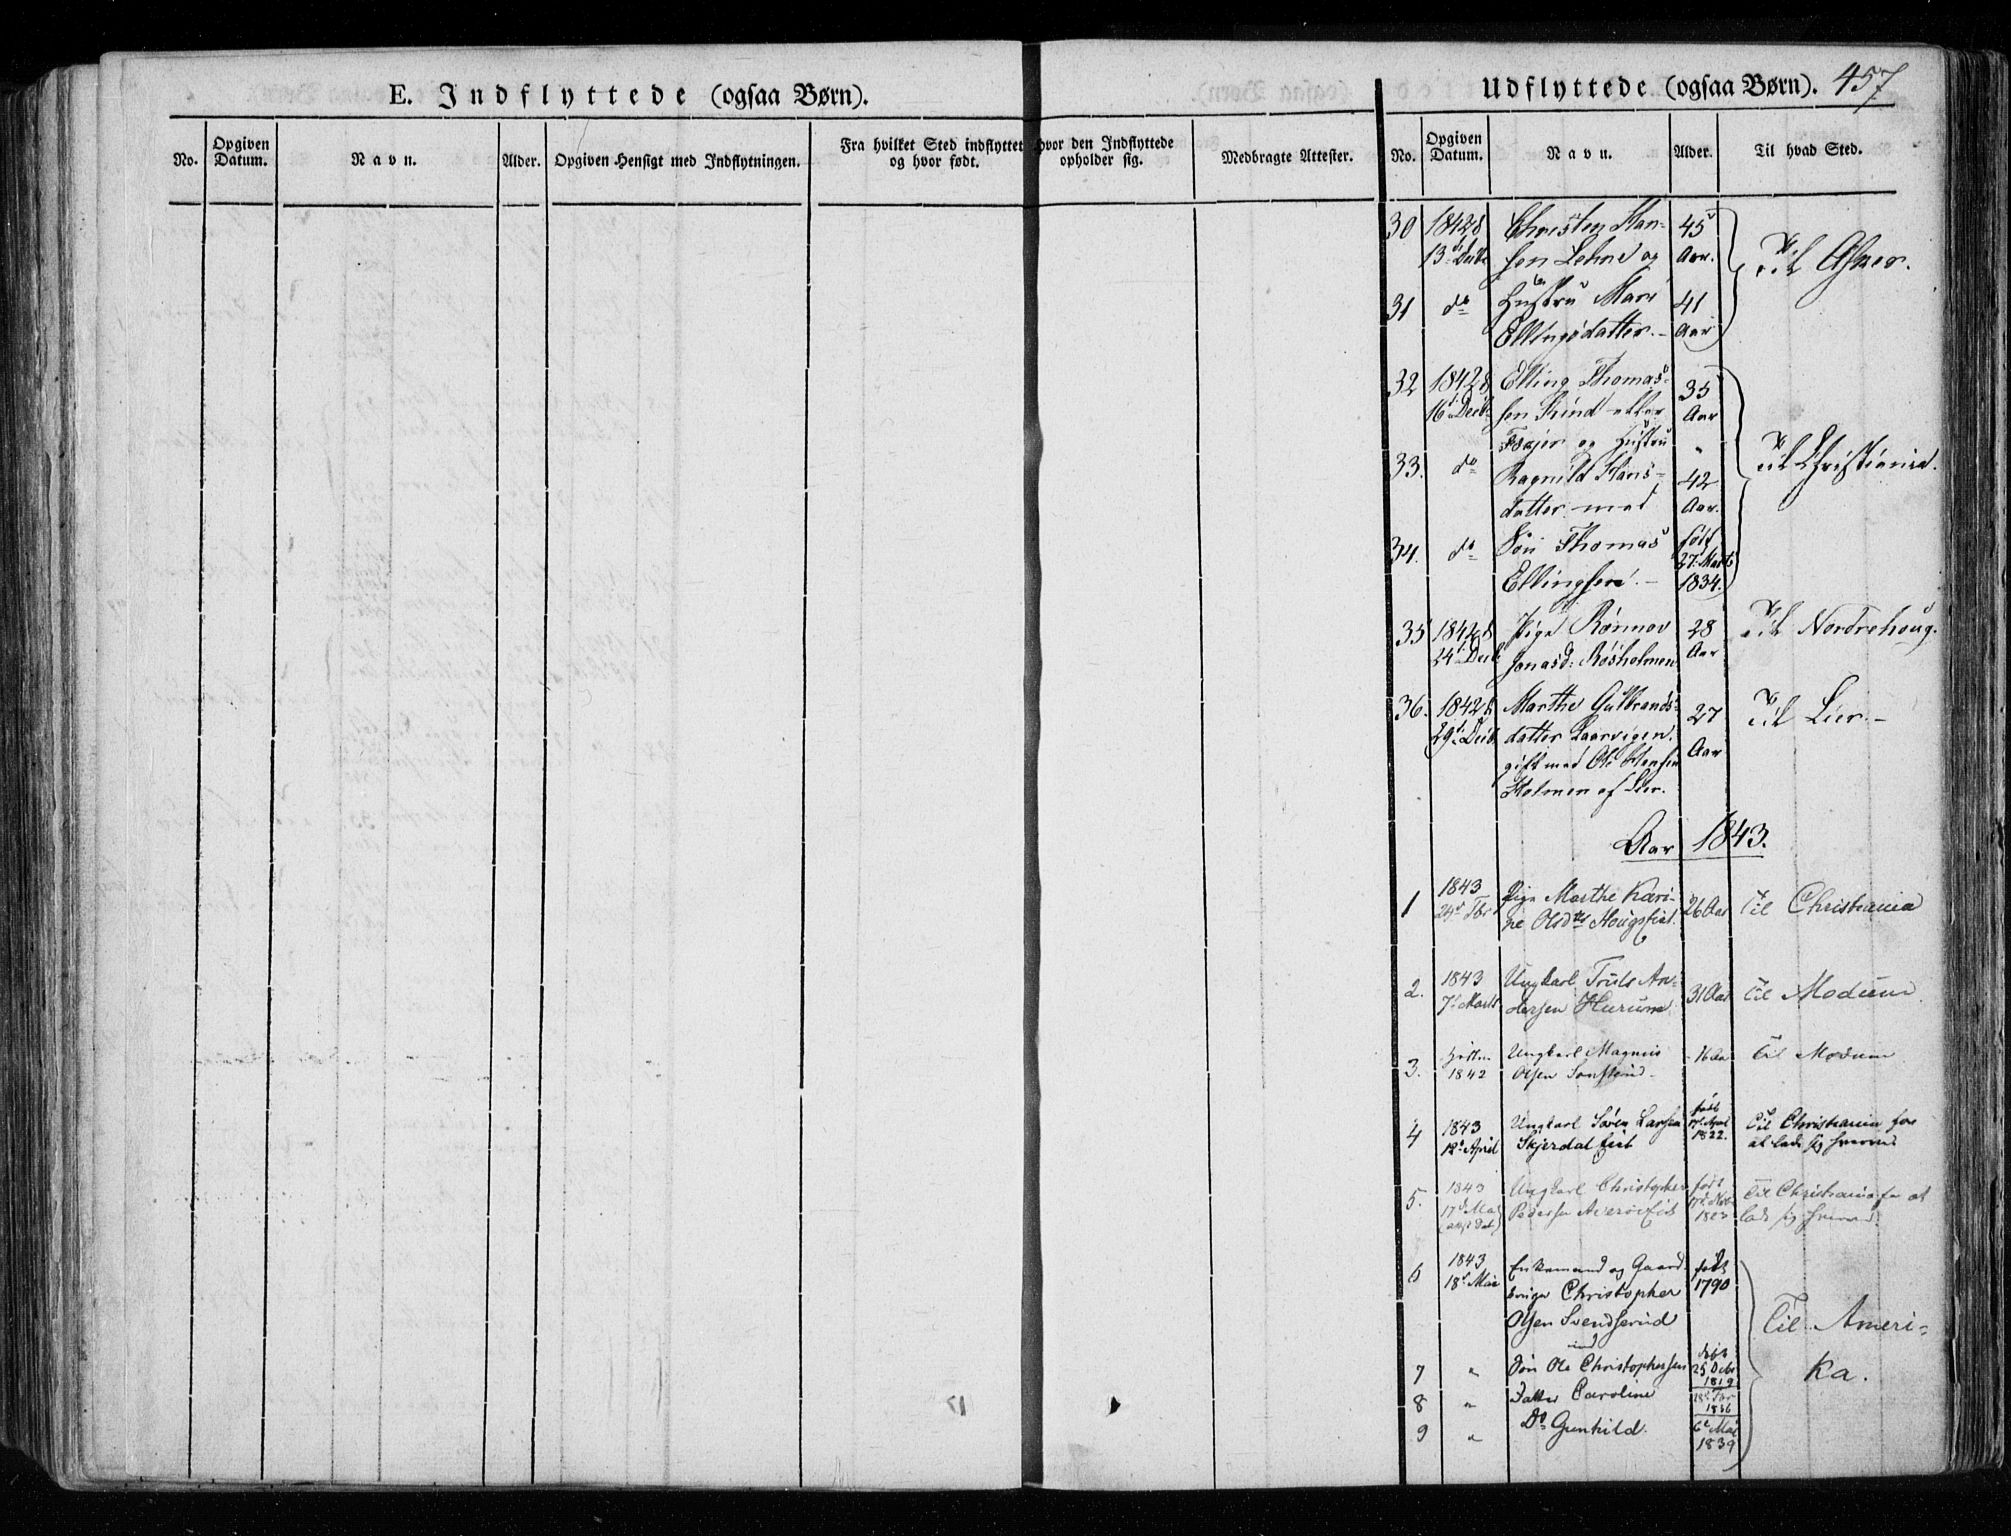 E. Indflyttede (ogsaa Børn).
No. Opgiven Datum. Navn. Alder. Opgiven Hensigt med Indflytningen. Fra hvilket Sted indflyttet og hvor født. Hvor den Indflyttede opholder sig. Medbragte Attester.
Udflyttede (ogsaa Børn). 457
No. Opgiven Datum. Navn. Alder. Til hvad Sted.
30 1842 Christen Han- 45
13 Decbr sen Lehne og Aar. Til Asker.
31 do Hustru Mari 41
Ellingsdatter. Aar
32 1842 Elling Thomas- 35
16 Decbr sen Rud eller Aar
og Hustru
33. do Ragnild Hans- 42 Til Christiania.
datter med Aar.
34. do Søn Thomas født
Ellingsen. 27 Marts
1834.
35 1842 Pige Rønnov 28 Til Nordrehoug.
24 Decbr Jonasd: Røsholmen Aar
36. 1842 Marthe Gulbrands- 27 Til Lier.
29 Decbr datter Laarvigen. Aar
gift med Ole Hansen
Holmen af Lier.
Aar 1843.
1 1843 Pige Marthe Kari- 26 Aar Til Christiania
24 Fbr ne Olsdtr Hougsfiat.
2. 1843 Ungkarl Truls An- 31 Aar Til Modum
7 Marts dersen Hurum
3. 1842 Ungkarl Magnus 16 Aar Til Modum
Olsen
4 1843 Ungkarl Søren Larsen født Til Christiania for
12 April Skjerdal eiet 17 April 1822. at lade sig hverve
5. 1843 Ungkarl Christopher født Til Christiania for at
17 Mai Pedersen lade sig hverve
6 1843 Enkemand og Gaard- født
18 Mai bruger Christopher 1790
Olsen Svendserud Til Ameri-
med
7 " Søn Ole Christophersen født 25 Decbr 1819 ka.
8 " Datter Caroline 1836
9 " Do Gunhild. 6 Mai
1839